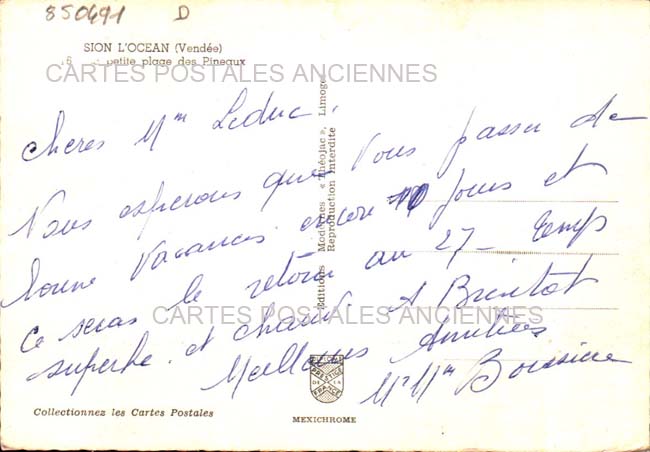 850491 D
SION L'OCEAN (Vendée)
petite plage des Pineaux
CARTES POSTALES ANCIENNES
Chères Mme Leduc,
Nous esperons que Vous passer de
bonne Vacances. encore jours et
ce seras le retour au 27 - temps
superbe. et chaud. A Bientot
Meilleures Amitiées
Mr Mme Boissière
CARTES POSTALES ANCIENNES
Éditions Modernes « Théojac », Limoges
Reproduction Interdite
PRESTIGE
DE LA
FRANCE
Collectionnez les Cartes Postales
MEXICHROME